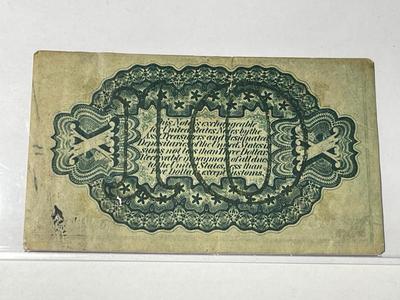 This Note is exchangeable
for United States Notes by the
Asst. Treasurers and designated
Depositaries of the United States
in sums not less than Three Dollars.
Receivable in payment of all dues
to the United States, less than
Five Dollars, except Customs.
X
10
X